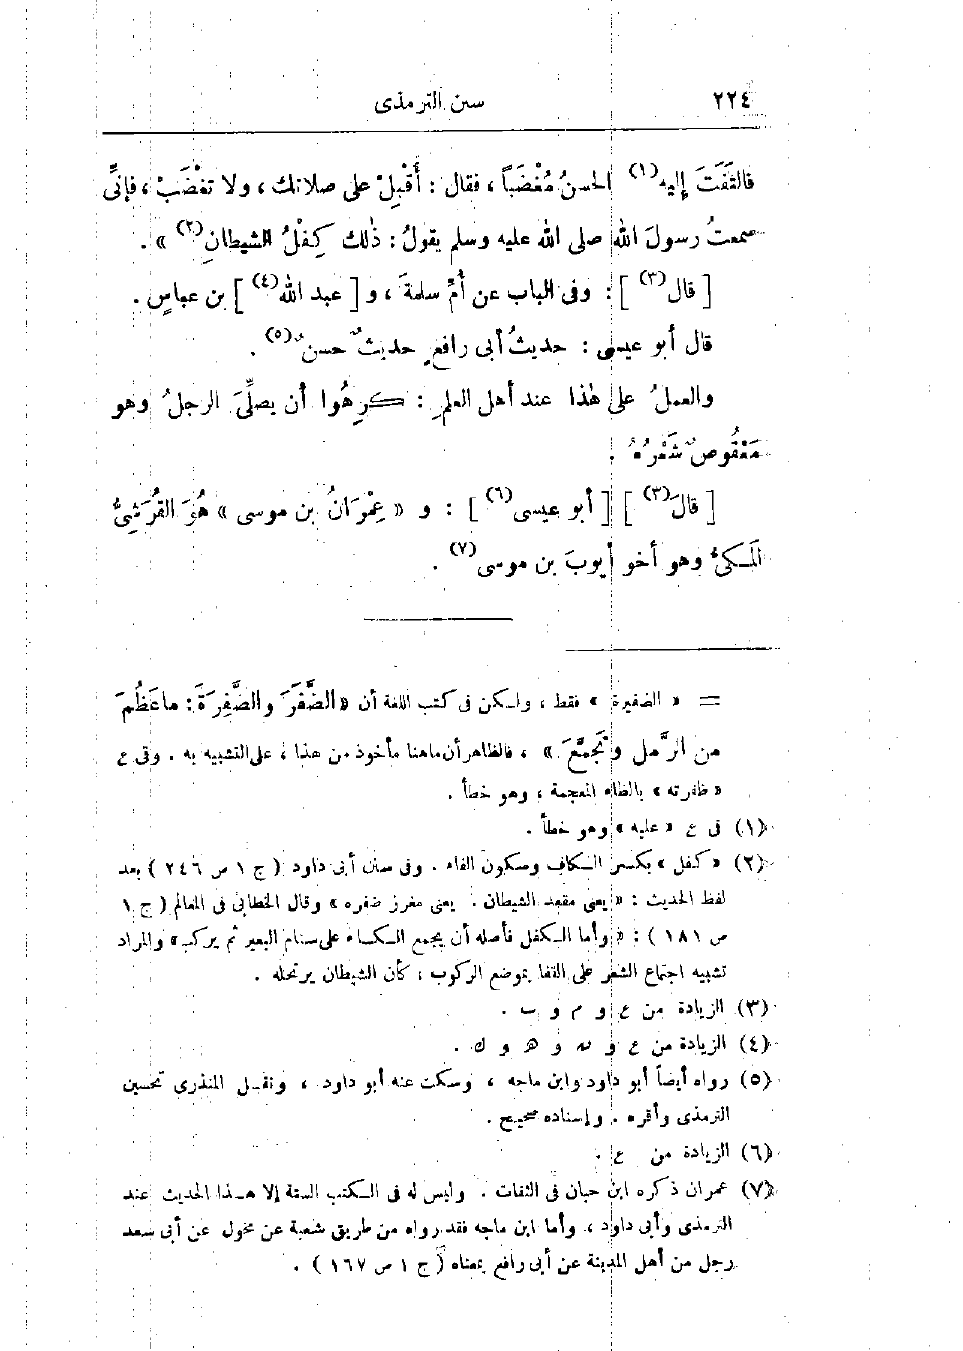 ٢٢٤ سنن الترمذى
فَالْتَفَتَ إليه(١) الحسنُ مُغْضَباً ، فقال : أَقْبِلْ على صلاتك ، ولا تغْضَبْ ، فإنِّى
سمعتُ رسولَ الله صلى الله عليه وسلم يقولُ : ذٰلك كِفْلُ الشيطانِ(٢) » .
[ قال(٣) ] : وفى الباب عن أُمِّ سلمةَ ، و [ عبد الله(٤) ] بن عباسٍ .
قال أبو عيسى : حديثُ أبى رافعٍ حديثٌ حسنٌ(٥) .
والعملُ على هٰذا عند أهل العلم : كَرِهُوا أن يصلِّىَ الرجلُ وهو
مَعْقُوصٌ شَعْرُهُ .
[ قالَ(٣) ] [ أبو عيسى(٦) ] : و « عِمْرَانُ بن موسى » هُوَ القُرَشِىُّ
المَكىُّ وهو أخو أيوبَ بن موسى(٧) .
= « الضفيرة » فقط ، ولكن فى كتب اللغة أن « الضَّفَرَ والضَّفِرَةَ : ماعَظُمَ
من الرَّمل وتَجَمَّعَ » ، فالظاهر أن ماهنا مأخوذ من هذا ، على التشبيه به . وفى ع
« ظفرته » بالظاء المعجمة ، وهو خطأ .
(١) فى ع « عليه » وهو خطأ .
(٢) « كفل » بكسر الكاف وسكون الفاء . وفى سنن أبى داود ( ج ١ ص ٢٤٦ ) بعد
لفظ الحديث : « يعنى مقعد الشيطان . يعنى مغرز ضفره » وقال الخطابى فى المعالم ( ج ١
ص ١٨١ ) : « وأما الكفل فأصله أن يجمع الكساء على سنام البعير ثم يركب » والمراد
تشبيه اجتماع الشعر على القفا بموضع الركوب ، كأن الشيطان يرتحله .
(٣) الزيادة من ع و م و ب .
(٤) الزيادة من ع و نه و ه و ك .
(٥) رواه أيضاً أبو داود وابن ماجه ، وسكت عنه أبو داود ، ونقل المنذرى تحسين
الترمذى وأقره . وإسناده صحيح .
(٦) الزيادة من ع .
(٧) عمران ذكره ابن حبان فى الثقات . وليس له فى الكتب الستة إلا هذا الحديث عند
الترمذى وأبى داود ، وأما ابن ماجه فقد رواه من طريق شعبة عن مخول عن أبى سعد
رجل من أهل المدينة عن أبى رافع بمعناه ( ج ١ ص ١٦٧ ) .